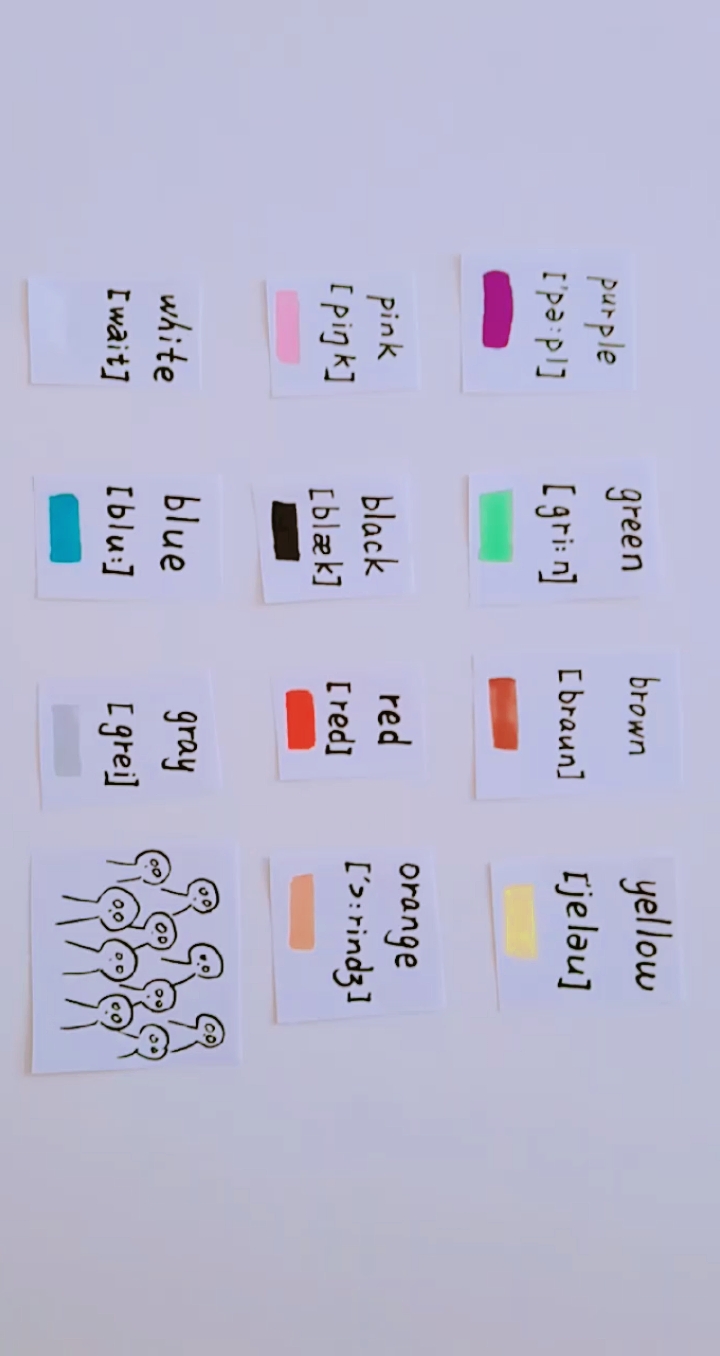 purple
['pə:pl]
green
[gri:n]
brown
[braun]
yellow
['jeləu]
pink
[piŋk]
black
[blæk]
red
[red]
orange
['ɔ:rindʒ]
white
[wait]
blue
[blu:]
gray
[grei]